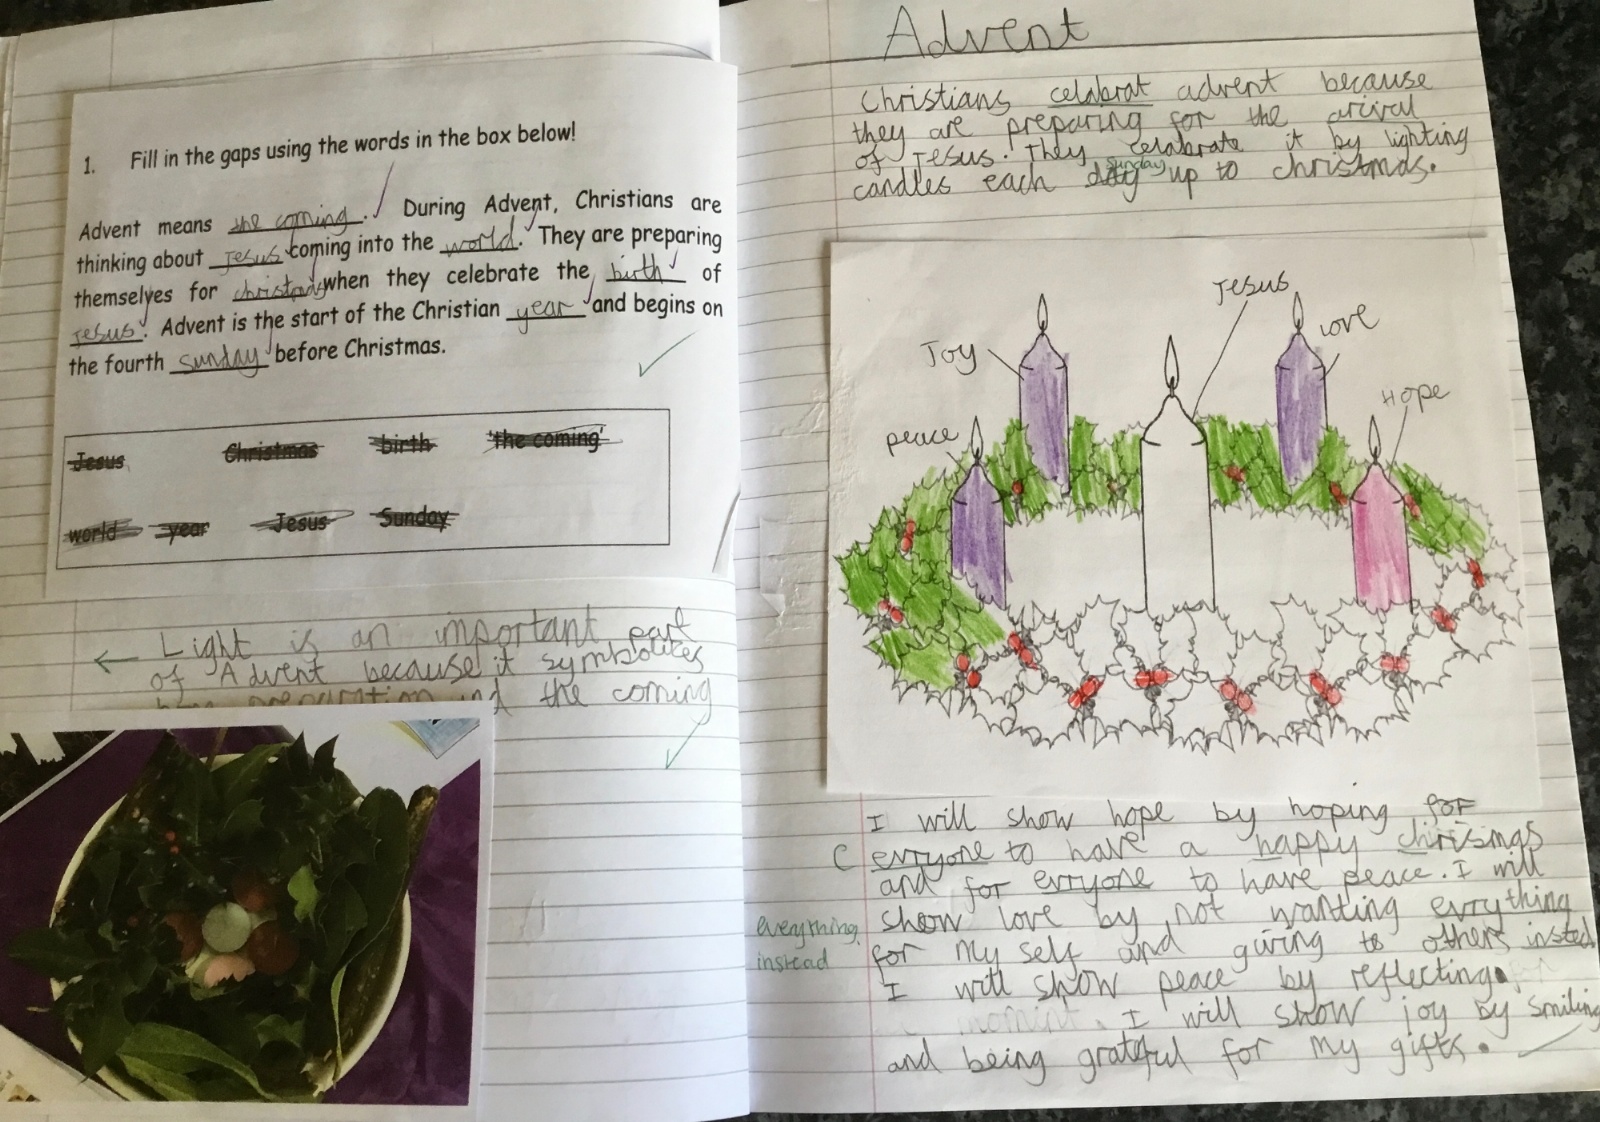 1. Fill in the gaps using the words in the box below!
Advent means the coming. During Advent, Christians are
thinking about Jesus coming into the world. They are preparing
themselves for christmas when they celebrate the birth of
Jesus. Advent is the start of the Christian year and begins on
the fourth sunday before Christmas.
Jesus Christmas birth 'the coming'
world year Jesus Sunday
Light is an important part
of Advent because it symbolises
preparation the coming
Advent
Christians celabrat advent because
they are preparing for the arival
of Jesus. They celabrate it by lighting
sunday
candles each day up to christmas.
Jesus
love
Joy
Hope
peace
I will show hope by hoping for
C evryone to have a happy chrismas
and for evryone to have peace. I will
show love by not wanting evrything
everything
for my self and giving to others insted
instead
I will show peace by reflecting.
moment. I will show joy by smiling
and being grateful for my gifts.